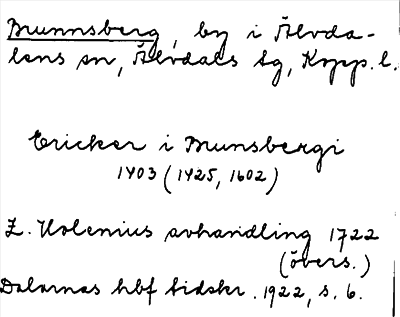 Brunnsberg, by i Älvda-
lens sn, Älvdals tg, Kopp. l.
Ericker i Brunsbergi
1403 (1425, 1602)
Z. Holenius avhandling 1722
(övers.)
Dalarnas hbf tidskr. 1922, s. 6.